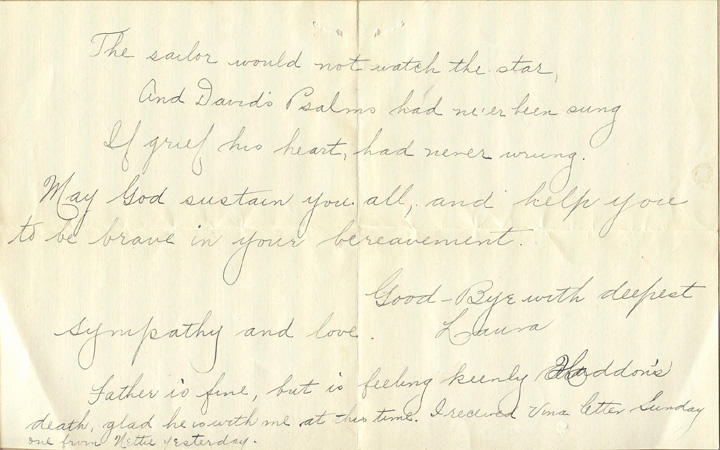 The sailor would not watch the star,
And David's Psalms had ne'er been sung
If grief his heart, had never wrung.
May God sustain you all, and help you
to be brave in your bereavement.
Good-Bye with deepest
sympathy and love. Laura
Father is fine, but is feeling keenly Haddon's
death, glad he is with me at this time. I received Vina letter Sunday
one from Nettie yesterday.